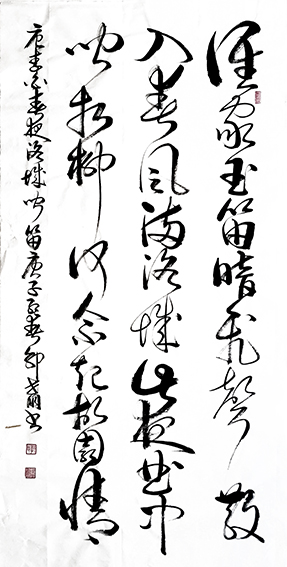 谁家玉笛暗飞声散
入春风满洛城此夜曲中
闻折柳何人不起故园情
唐李白春夜洛城闻笛庚子